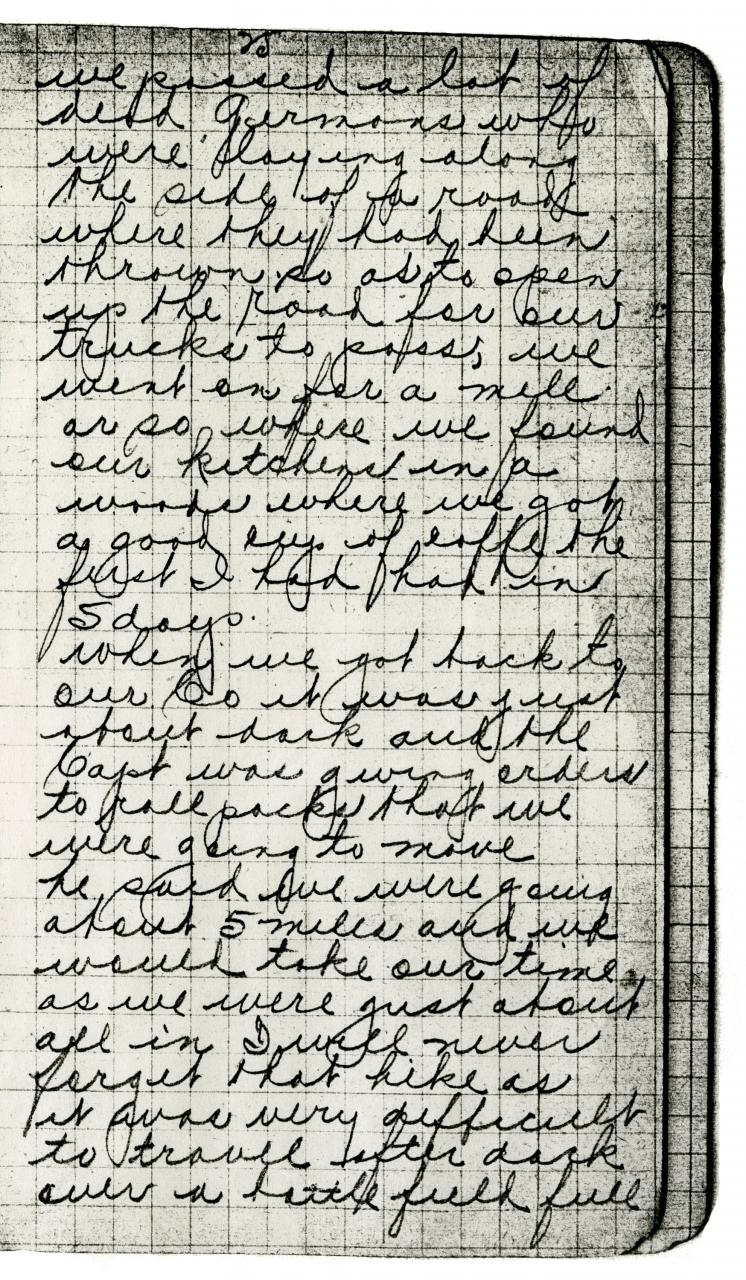 we passed a lot of
dead Germans who
were laying along
the side of a road
where they had been
thrown so as to open
up the road for our
trucks to pass, we
went on for a mile
or so where we found
our kitchens in a
woods where we got
a good cup of coffe the
first I had had in
5 days.
when we got back to
our Co it was just
about dark and the
Capt was giving orders
to roll packs that we
were going to move
he said we were going
about 5 miles and we
would take our time
as we were just about
all in I will never
forget that hike as
it was very difficult
to travel after dark
over a battle field full